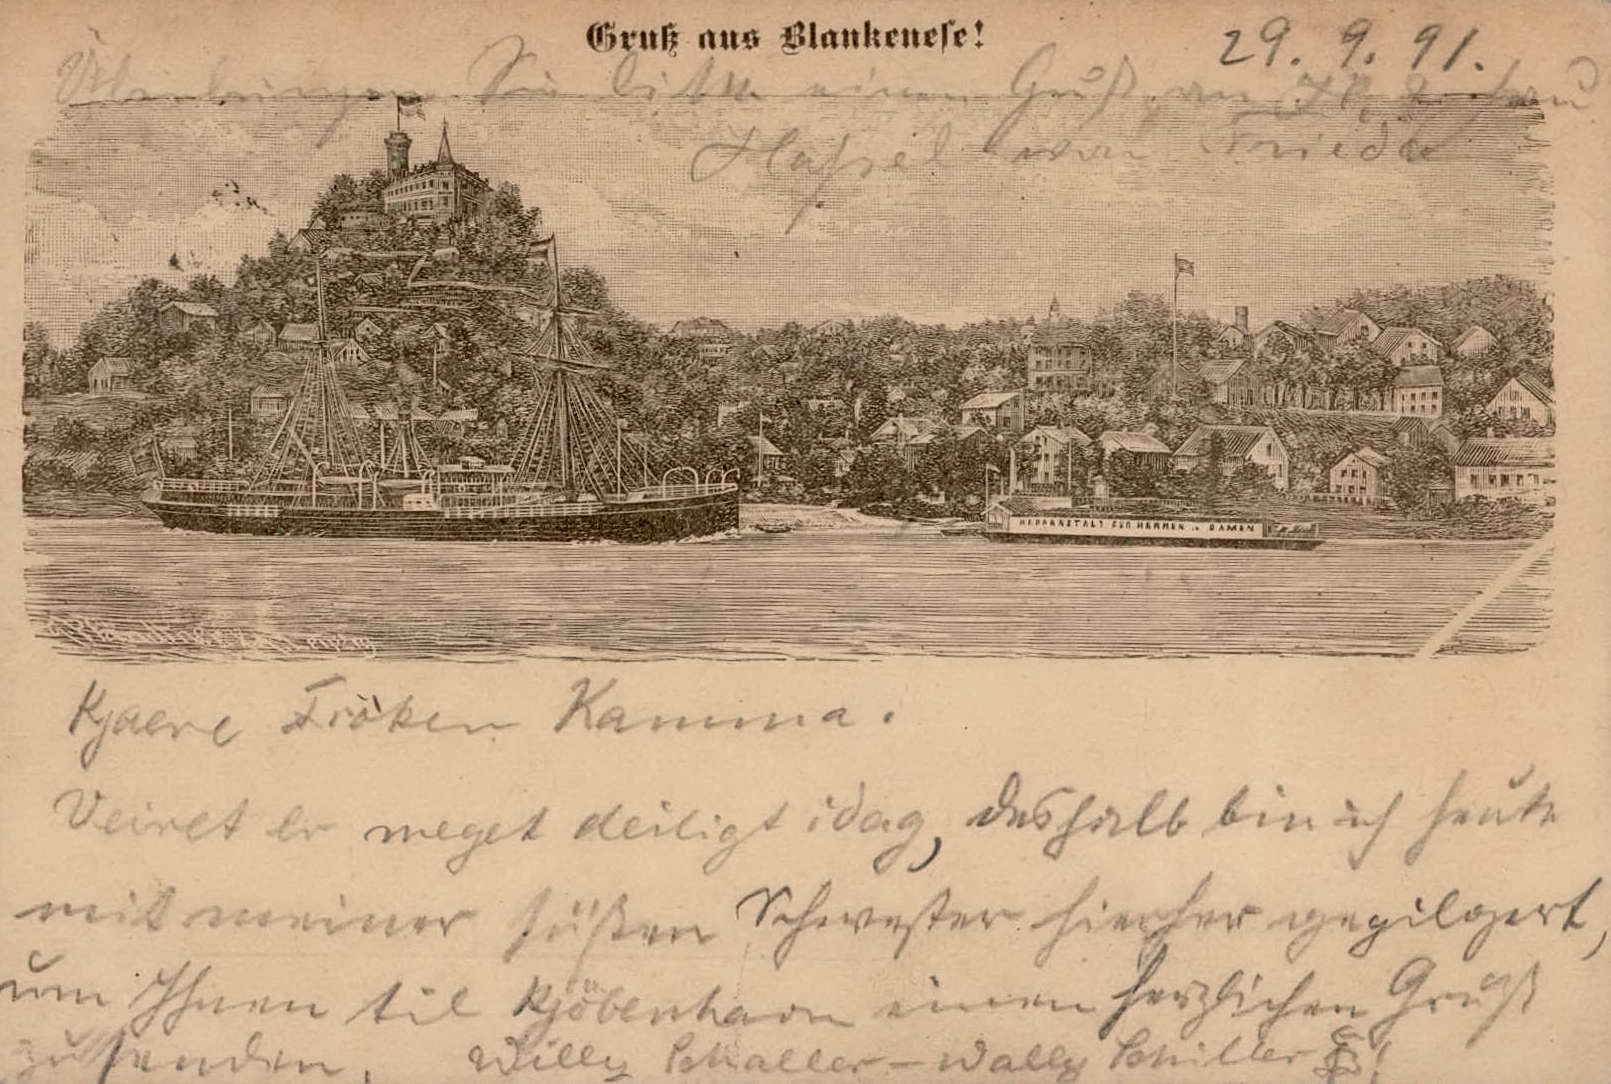 Gruß aus Blankenese!
29. 9. 91.
Überbringen Sie bitte einen Gruß an Frau
Hassel von Frieda
BADEANSTALT FÜR HERREN u. DAMEN
Kjaere Fröken Kamma.
Veiret er meget deiligt idag, deshalb bin ich heute
mit meiner süßen Schwester hierher gepilgert,
um Ihnen til Kjöbenhavn einen herzlichen Gruß
zu senden. Willy Schaller – Wally Schiller